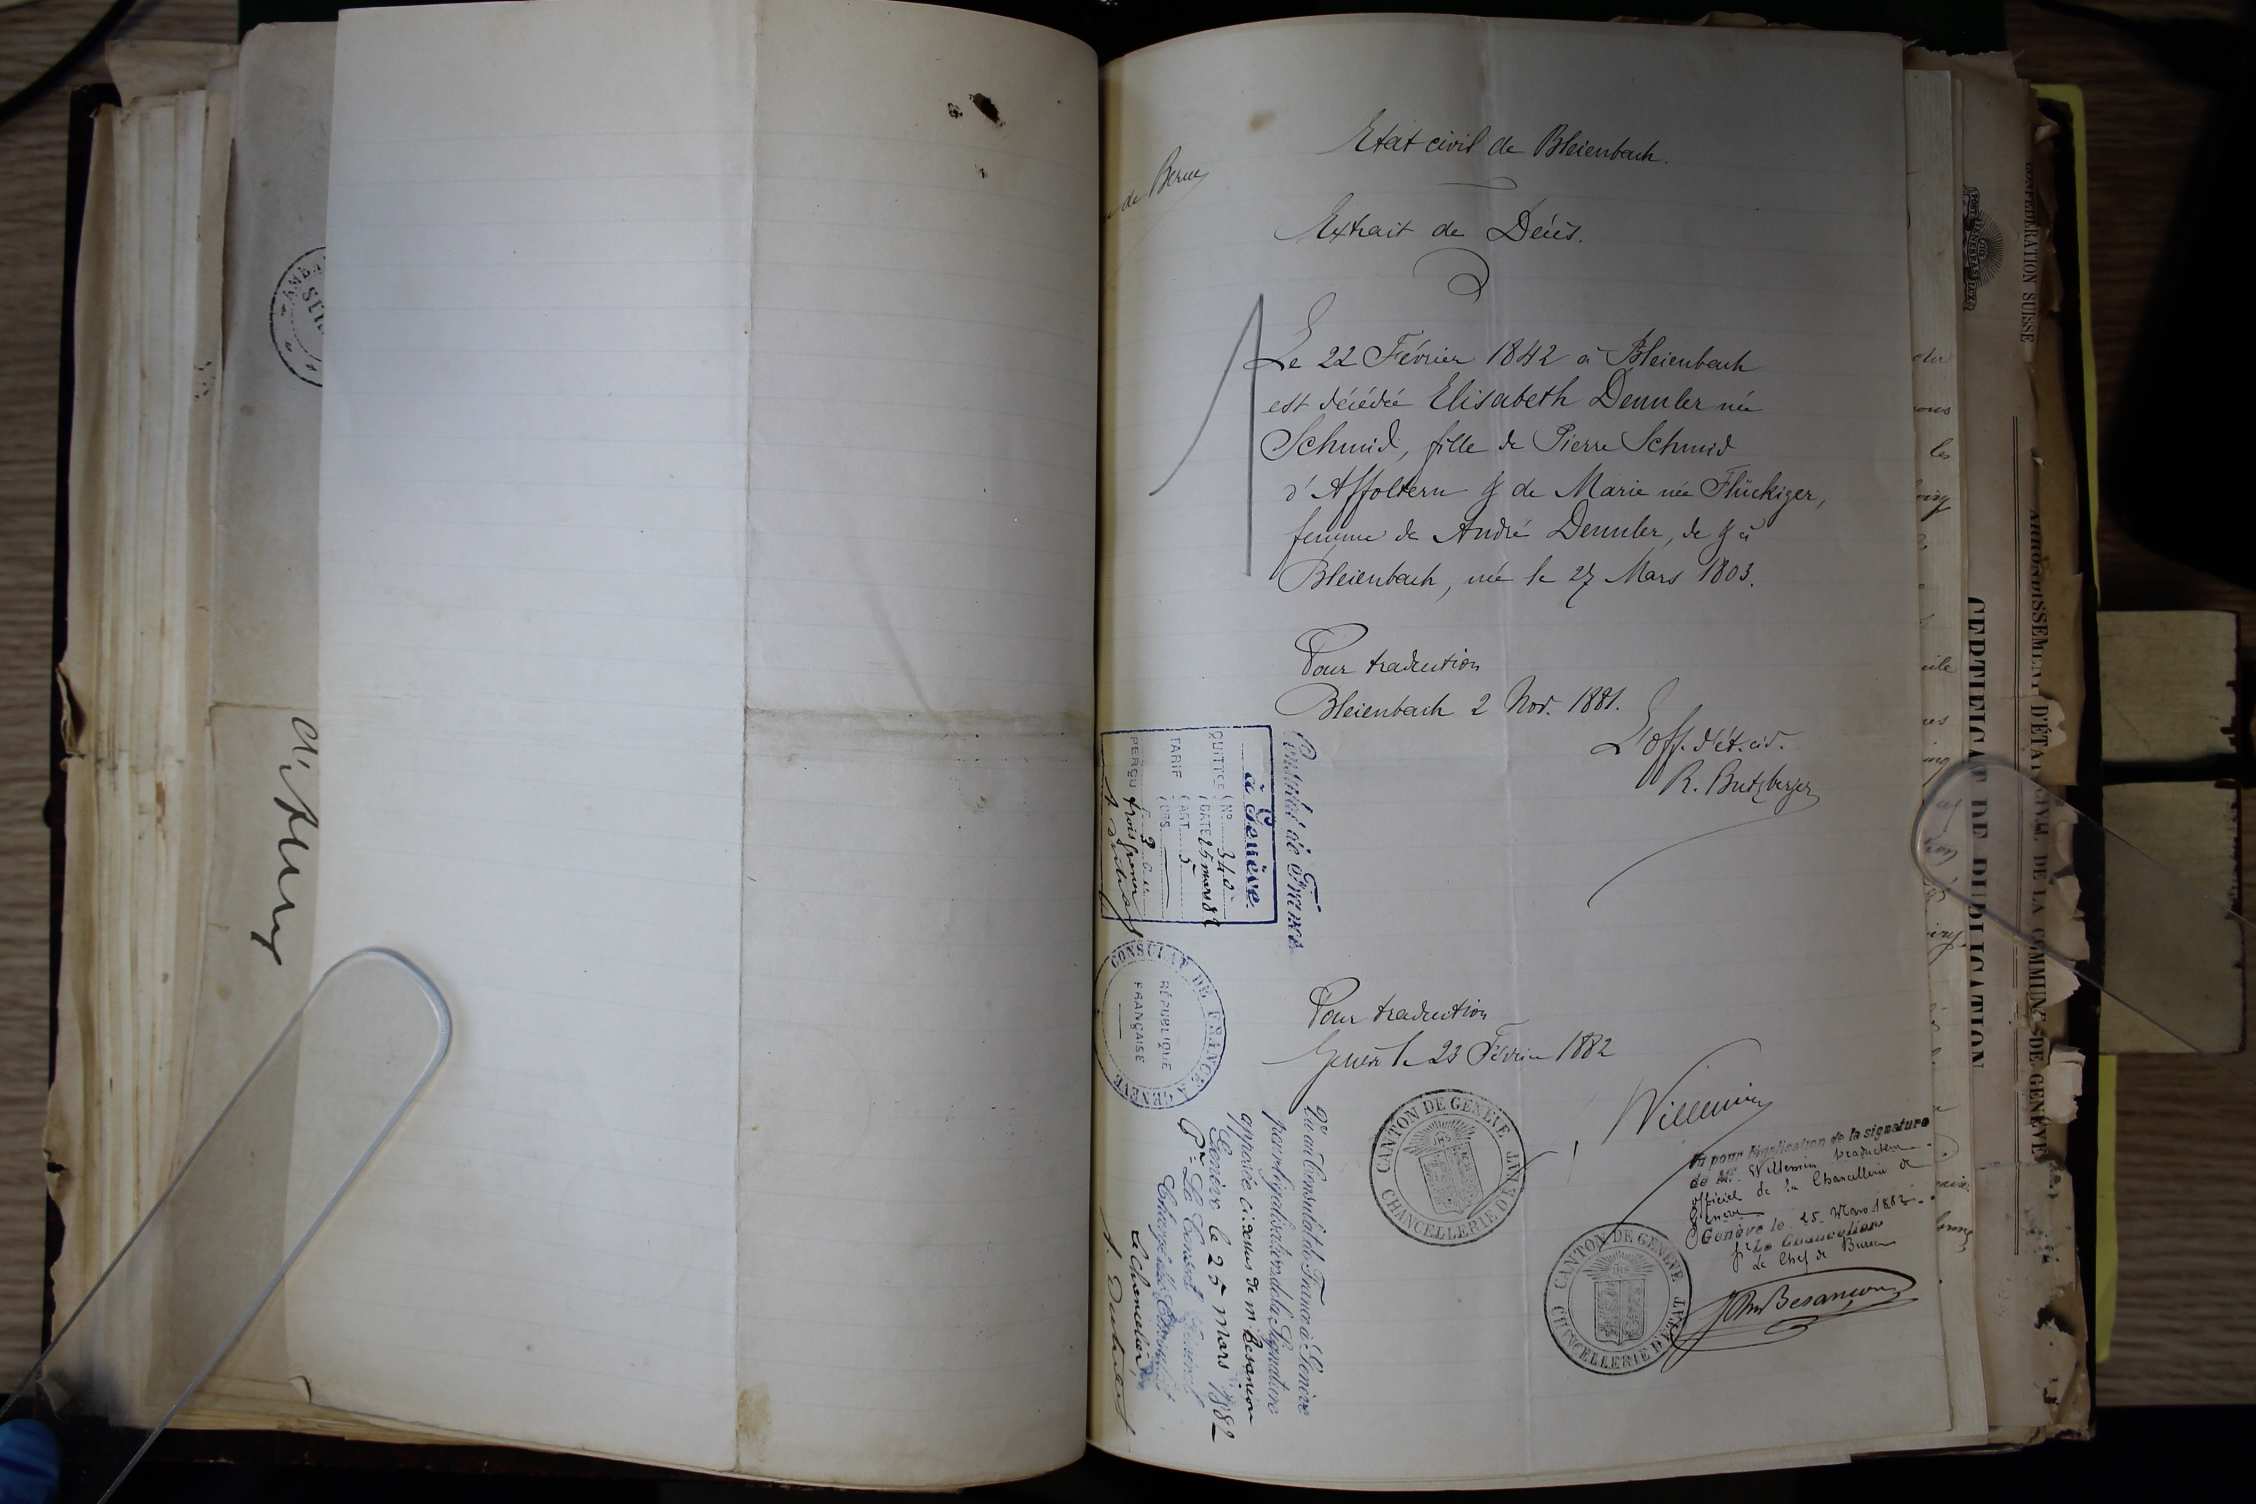 d'Auny
de Berne
Etat civil de Bleienbach.
Extrait de Décès.
Le 22 Février 1842 à Bleienbach
est décédée Elisabeth Dennler née
Schmid, fille de Pierre Schmid
d'Affoltern & de Marie née Flückiger,
femme de André Dennler, de & à
Bleienbach, née le 27 Mars 1803.
Pour traduction
Bleienbach 2 Nov. 1881.
L'off. d'ét. civ.
R. Butzberger
Consulat de France
à Genève.
QUITTCE Nº 340
DATE 25 mars 82
TARIF ART. 5
PERÇU f. 3
trois francs
CONSULAT DE FRANCE A GENÈVE
RÉPUBLIQUE
FRANÇAISE
Pour traduction
Genève le 23 Février 1882
Willemin
CANTON DE GENEVE
CHANCELLERIE D'ETAT
Vu pour légalisation de la signature
de Mr. Willemin traducteur
officiel de la Chancellerie de
Genève
Genève le 25 Mars 1882.
pr Le Chancelier
Le Chef de Bureau
J. Besançon
CANTON DE GENEVE
CHANCELLERIE D'ETAT
Vu au Consulat de France à Genève
pour légalisation de la Signature
apposée ci-dessus de m Besançon
Genève le 25 mars 1882
Pr Le Consul Général
Le Chancelier,
CONFEDERATION SUISSE
ARRONDISSEMENT D'ÉTAT CIVIL DE LA COMMUNE DE GENÈVE
CERTIFICAT DE PUBLICATION